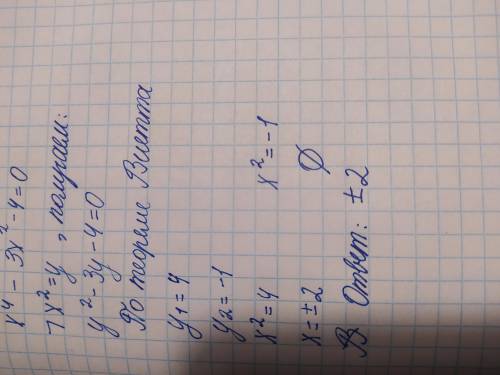 x⁴ - 3x² - 4 = 0
⌐ x² = y, получаем:
y² - 3y - 4 = 0
По теореме Виетта
y1 = 4
y2 = -1
x² = 4 x² = -1
x = ±2 ∅
Ответ: ±2